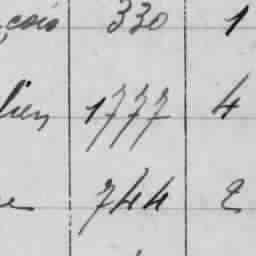 çois 330 1
lien 1777 4
e 744 2